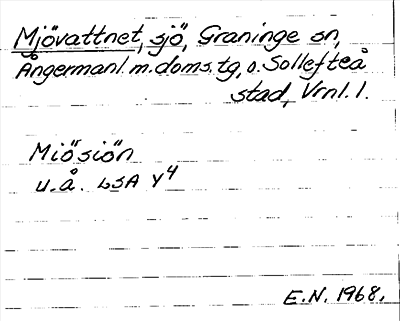 Mjövattnet, sjö, Graninge sn,
Ångermanl. m. doms. tg, o. Sollefteå
stad, Vrnl. l.
Miösiön
u. å. LSA Y4
E.N. 1968.